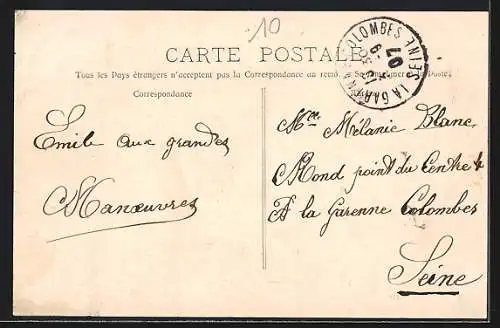 10
CARTE POSTALE
Tous les Pays étrangers n'acceptent pas la Correspondance au
Correspondance
LA GARENNE-COLOMBES SEINE
07
Emile aux grandes
Manœuvres
Mlle Mélanie Blanc
Rond point du Centre 4
A la Garenne Colombes
Seine